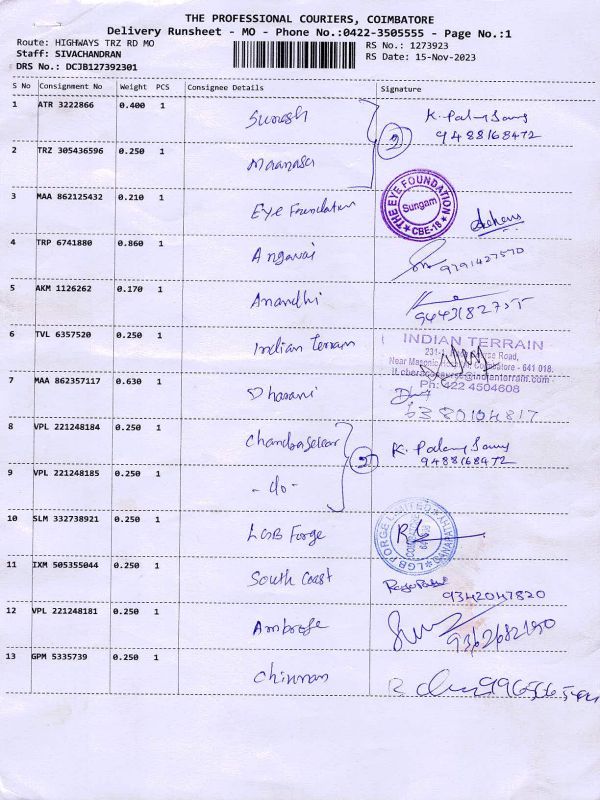 THE PROFESSIONAL COURIERS, COIMBATORE
Delivery Runsheet - MO - Phone No.:0422-3505555 - Page No.:1
Route: HIGHWAYS TRZ RD MO
RS No.: 1273923
Staff: SIVACHANDRAN
RS Date: 15-Nov-2023
DRS No.: DCJB127392301
S No Consignment No Weight PCS Consignee Details Signature
1 ATR 3222866 0.400 1 Suresh
9488168472
2 TRZ 305436596 0.250 1 Maanasa
2
3 MAA 862125432 0.210 1 Eye Foundation
THE EYE FOUNDATION
Sungam
CBE-18
4 TRP 6741880 0.860 1 Angavai 9791427570
5 AKM 1126262 0.170 1 Anandhi
6 TVL 6357520 0.250 1 Indian Terrain
INDIAN TERRAIN
Ph: 422 4504608
7 MAA 862357117 0.630 1 Dharani
6380104817
8 VPL 221248184 0.250 1 Chandrasekar
9488168472
2
9 VPL 221248185 0.250 1 -do-
10 SLM 332738921 0.250 1 LGB Forge
LGB FORGE LIMITED
11 IXM 505355044 0.250 1 South Coast
9342047820
12 VPL 221248181 0.250 1 Ambrose
9362682150
13 GPM 5335739 0.250 1 Chinnan